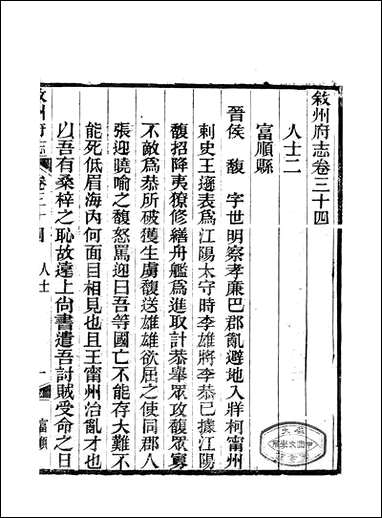 敘州府志卷三十四
人士二
富順縣
晉侯馥字世明察孝廉巴郡亂避地入牂柯甯州
刺史王遜表爲江陽太守時李雄將李恭已據江陽
馥招降夷獠修繕舟艦爲進取計恭舉眾攻馥眾寡
不敵爲恭所破獲生虜馥送雄雄欲屈之使同郡人
張迎曉喻之馥怒罵迎曰吾等國亡不能存大難不
能死低眉海內何面目相見也且王甯州治亂才也
以吾有桑梓之恥故遠上尙書遣吾討賊受命之日
敘州府志
卷三十四
人士
一
富順